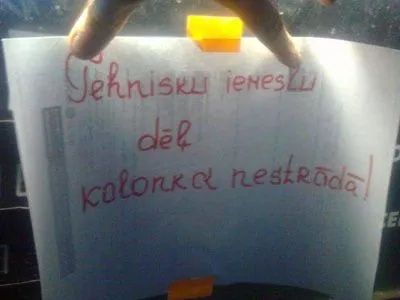 Tehnisku iemeslu
dēļ
kolonka nestrādā!